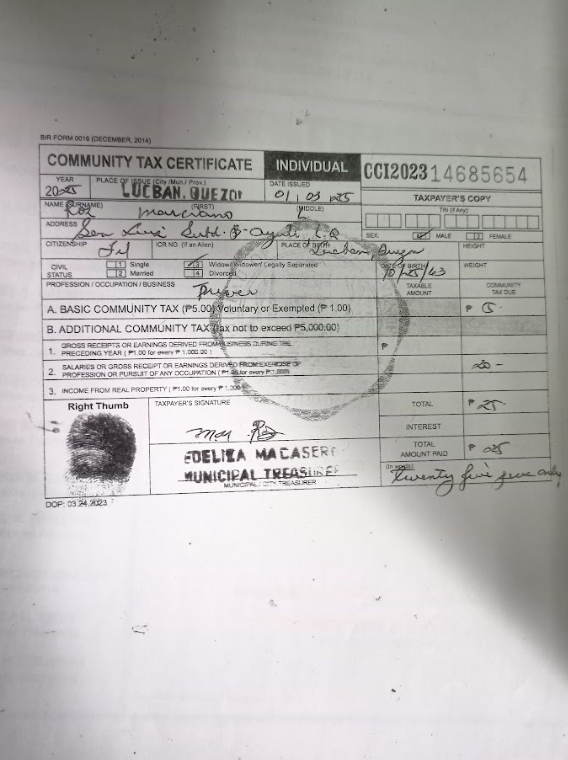 BIR FORM 0016 (DECEMBER, 2014)
COMMUNITY TAX CERTIFICATE INDIVIDUAL CCI2023 14685654
YEAR PLACE OF ISSUE (City / Mun./ Prov.) DATE ISSUED TAXPAYER'S COPY
2025 LUCBAN, QUEZON 01, 03 2025
NAME (SURNAME) (FIRST) (MIDDLE) TIN (If Any)
Marciano
ADDRESS San Luis Subd. SEX MALE FEMALE
CITIZENSHIP Fil ICR NO. (If an Alien) PLACE OF BIRTH Lucban, Quezon HEIGHT
CIVIL STATUS 1 Single 3 Widow/Widower/ Legally Separated DATE OF BIRTH WEIGHT
2 Married 4 Divorced 10/25/43
PROFESSION / OCCUPATION / BUSINESS Driver TAXABLE AMOUNT COMMUNITY TAX DUE
A. BASIC COMMUNITY TAX (₱5.00) Voluntary or Exempted (₱ 1.00) ₱ 5-
B. ADDITIONAL COMMUNITY TAX (tax not to exceed ₱5,000.00)
1. GROSS RECEIPTS OR EARNINGS DERIVED FROM BUSINESS DURING THE PRECEDING YEAR (₱1.00 for every ₱ 1,000.00) ₱
2. SALARIES OR GROSS RECEIPT OR EARNINGS DERIVED FROM EXERCISE OF PROFESSION OR PURSUIT OF ANY OCCUPATION (₱1.00 for every ₱ 1,000) 20-
3. INCOME FROM REAL PROPERTY (₱1.00 for every ₱ 1,000)
Right Thumb TAXPAYER'S SIGNATURE TOTAL ₱ 25-
INTEREST
EDELIZA MACASERO TOTAL AMOUNT PAID ₱ 25
MUNICIPAL TREASURER (in words)
MUNICIPAL / CITY TREASURER twenty five pesos only
DOP: 03.24.2023